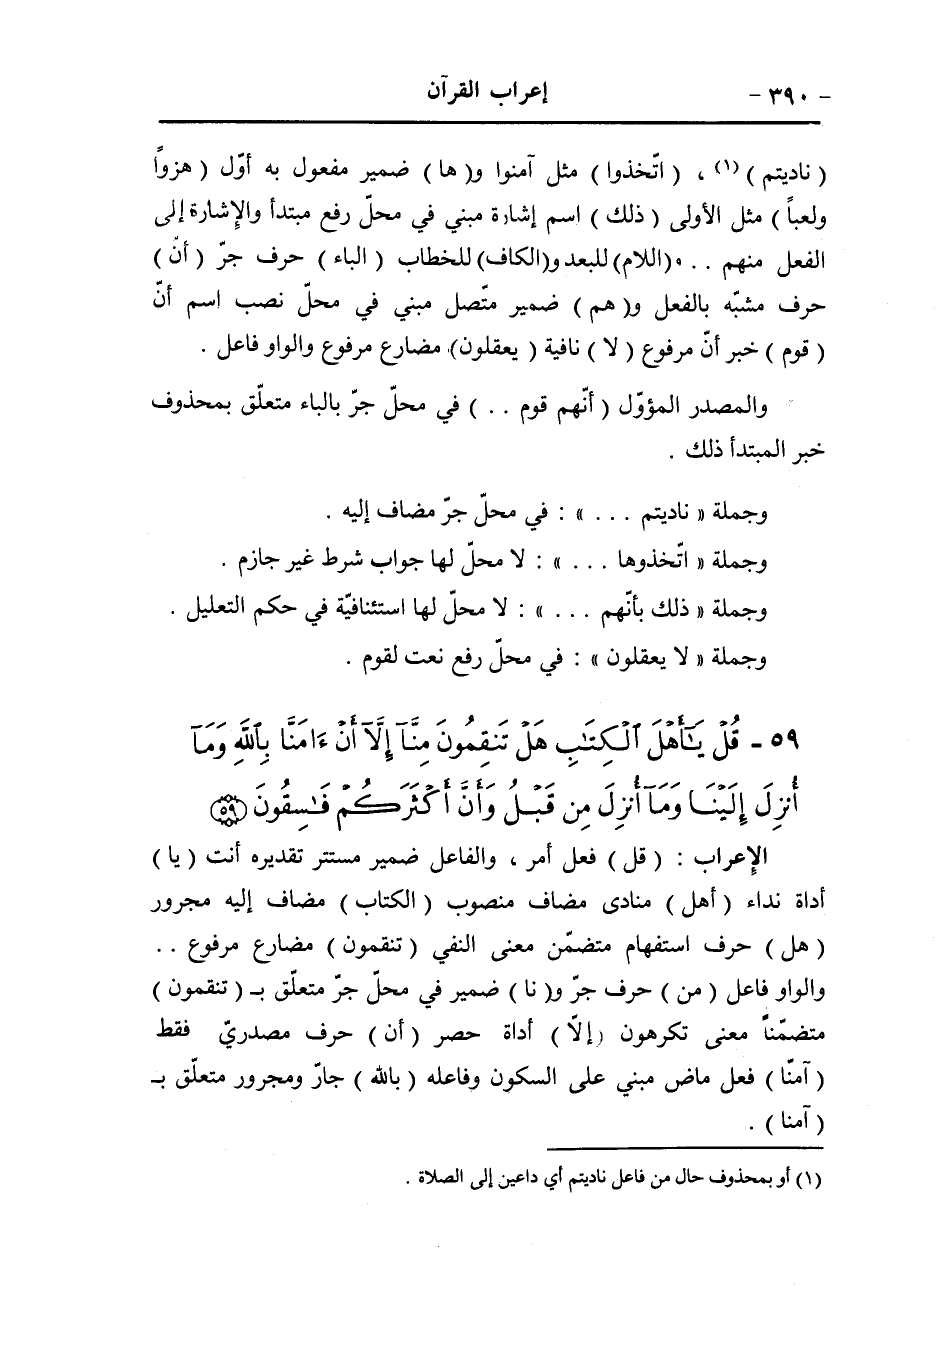 - ٣٩٠ -
إعراب القرآن
( ناديتم )(١) ، ( اتّخذوا ) مثل آمنوا و( ها ) ضمير مفعول به أوّل ( هزواً
ولعباً ) مثل الأولى ( ذلك ) اسم إشارة مبني في محلّ رفع مبتدأ والإشارة إلى
الفعل منهم . . و(اللام) للبعد و(الكاف) للخطاب ( الباء ) حرف جرّ ( أنّ )
حرف مشبّه بالفعل و( هم ) ضمير متّصل مبني في محلّ نصب اسم أنّ
( قوم ) خبر أنّ مرفوع ( لا ) نافية ( يعقلون) مضارع مرفوع والواو فاعل .
والمصدر المؤوّل ( أنّهم قوم . . ) في محلّ جرّ بالباء متعلّق بمحذوف
خبر المبتدأ ذلك .
وجملة « ناديتم . . . » : في محلّ جرّ مضاف إليه .
وجملة « اتّخذوها . . . » : لا محلّ لها جواب شرط غير جازم .
وجملة « ذلك بأنّهم . . . » : لا محلّ لها استئنافيّة في حكم التعليل .
وجملة « لا يعقلون » : في محلّ رفع نعت لقوم .
٥٩ - قُلْ يَٰٓأَهْلَ ٱلْكِتَٰبِ هَلْ تَنقِمُونَ مِنَّآ إِلَّآ أَنْ ءَامَنَّا بِٱللَّهِ وَمَآ
أُنزِلَ إِلَيْنَا وَمَآ أُنزِلَ مِن قَبْلُ وَأَنَّ أَكْثَرَكُمْ فَٰسِقُونَ ﴿٥٩﴾
الإعراب : ( قل ) فعل أمر ، والفاعل ضمير مستتر تقديره أنت ( يا )
أداة نداء ( أهل ) منادى مضاف منصوب ( الكتاب ) مضاف إليه مجرور
( هل ) حرف استفهام متضمّن معنى النفي ( تنقمون ) مضارع مرفوع . .
والواو فاعل ( من ) حرف جرّ و( نا ) ضمير في محلّ جرّ متعلّق بـ ( تنقمون )
متضمّناً معنى تكرهون ( إلّا ) أداة حصر ( أن ) حرف مصدريّ فقط
( آمنّا ) فعل ماض مبني على السكون وفاعله ( بالله ) جارّ ومجرور متعلّق بـ
( آمنا ) .
(١) أو بمحذوف حال من فاعل ناديتم أي داعين إلى الصلاة .